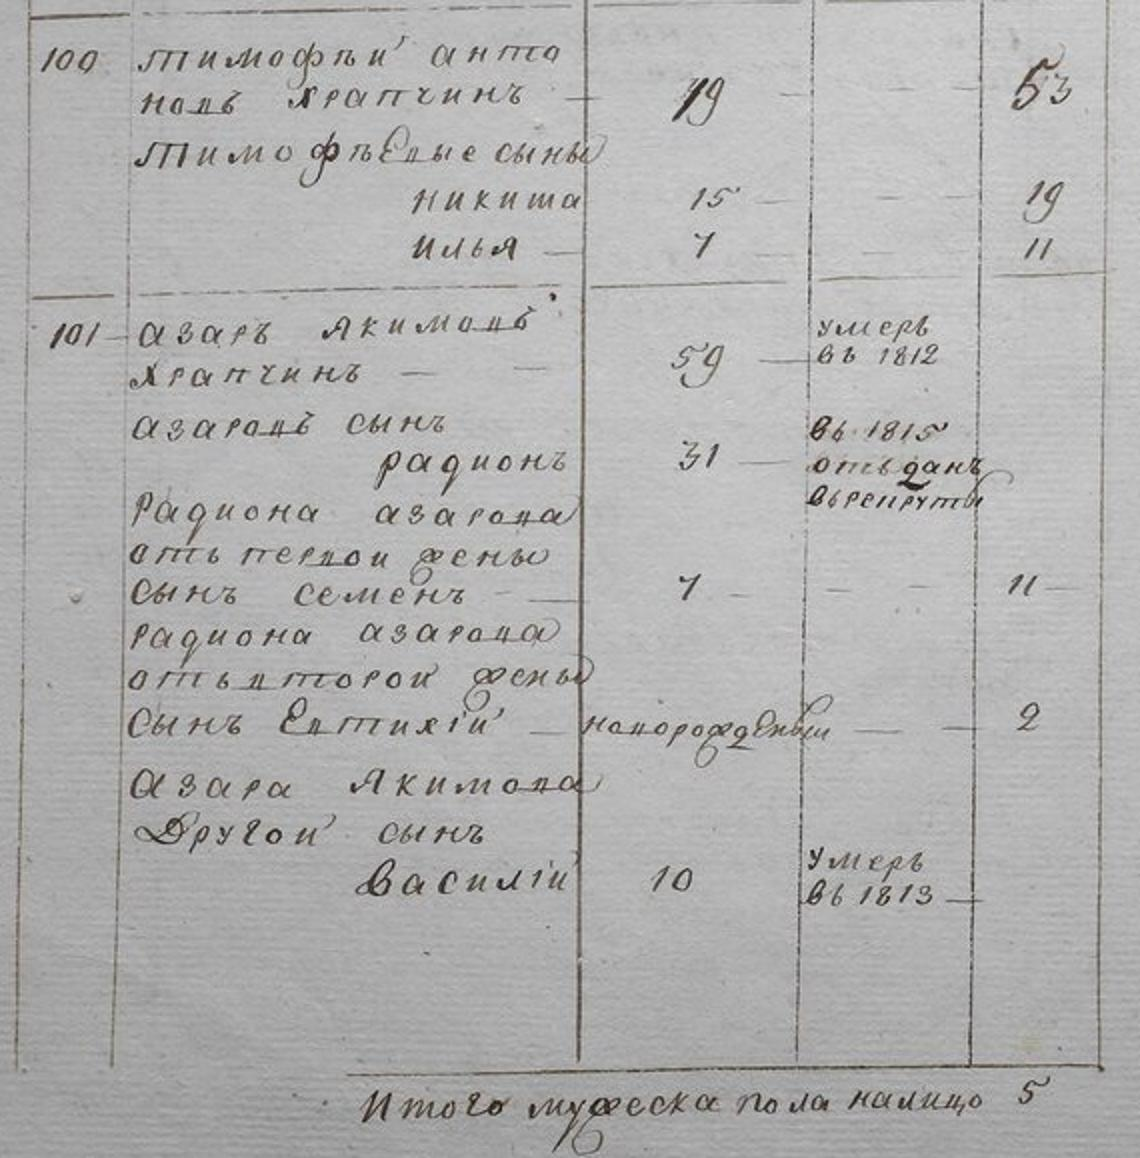 100 Тимофѣй Анто
новъ Храпчинъ — 49 — — 53
Тимофѣевые сыны
Никита 15 — — 19
Илья — 7 — — 11
101 Азаръ Якимовъ умеръ
Храпчинъ — — 59 — въ 1812
Азаровъ сынъ въ 1815
Радионъ 31 — отъданъ
въ рекруты
Радиона Азарова
отъ первой жены
сынъ Семенъ — 7 — — — 11 —
Радиона Азарова
отъ второй жены
сынъ Евтихiй — новорожденный — — 2
Азара Якимова
другой сынъ умеръ
Василiй 10 въ 1813 —
Итого мужеска пола налицо 5